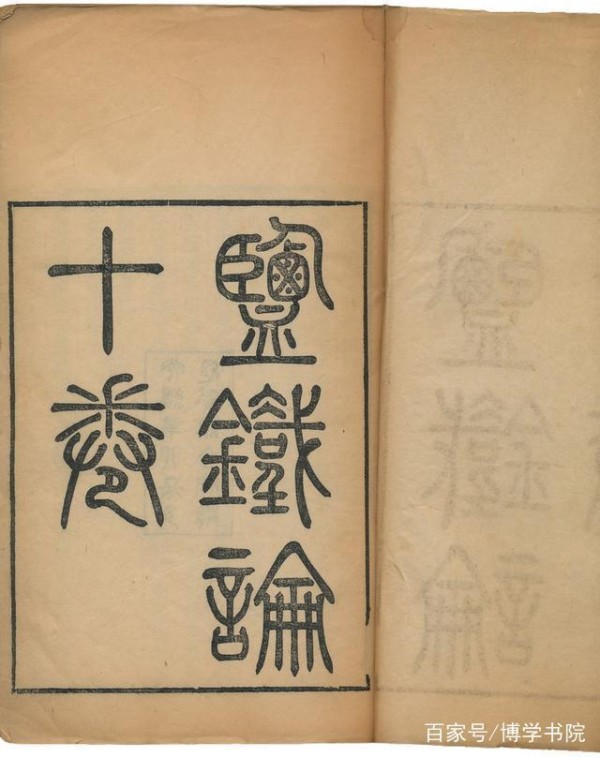 鹽鐵論
十卷
百家号/博学书院